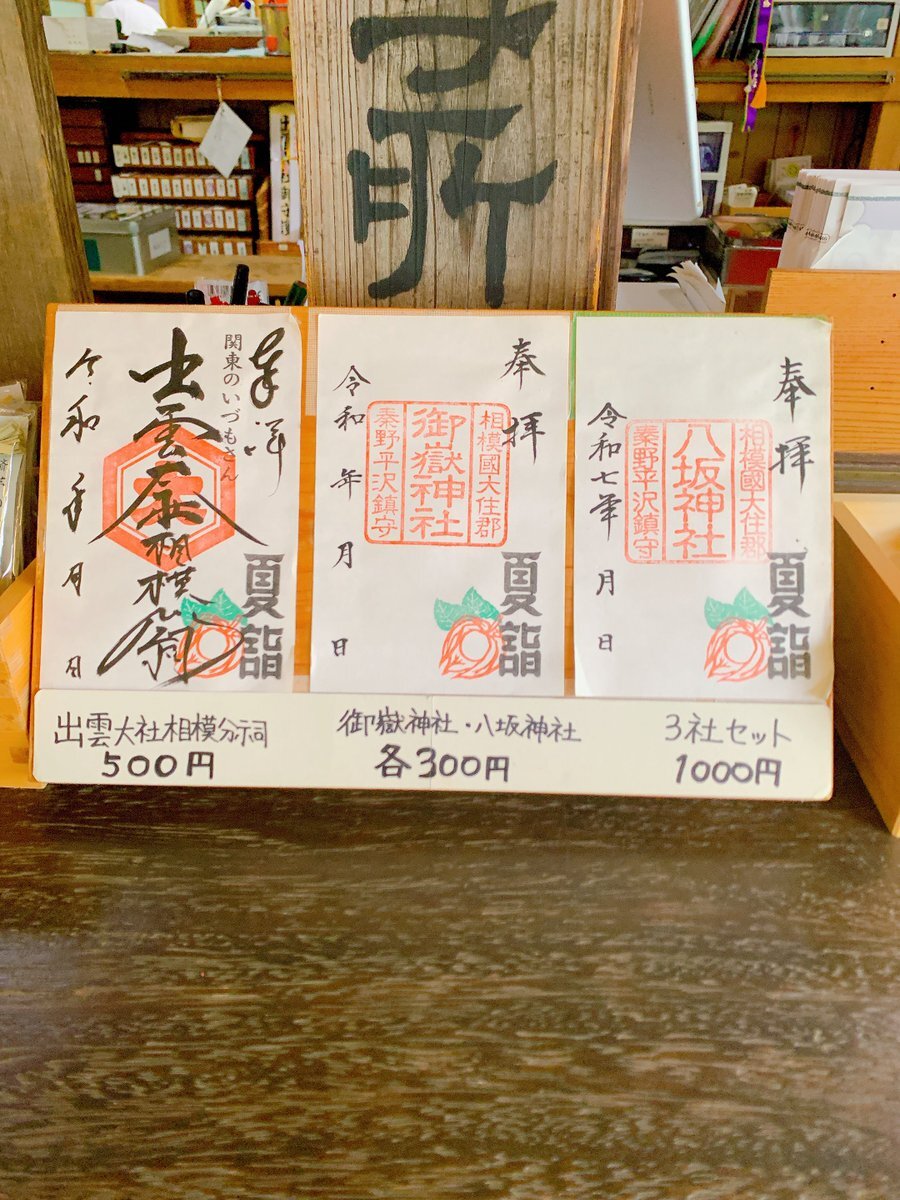 所
奉拝
関東のいづもさん
出雲大社相模分祠
令和 年 月 日
夏詣
奉拝
相模國大住郡
御嶽神社
秦野平沢鎮守
令和 年 月 日
夏詣
奉拝
相模國大住郡
八坂神社
秦野平沢鎮守
令和七年 月 日
夏詣
出雲大社相模分祠
500円
御嶽神社・八坂神社
各300円
3社セット
1000円